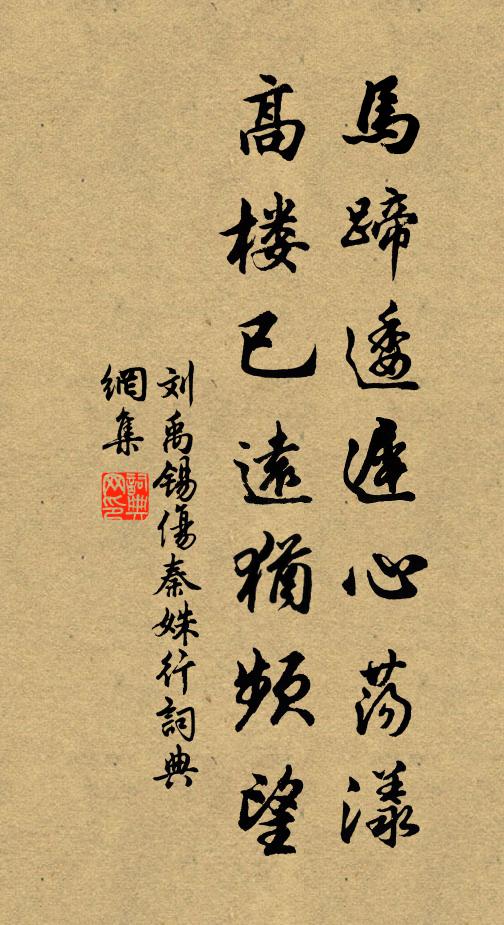 馬蹄逶遲心蕩漾
高楼已遠猶頻望
刘禹锡傷秦姝行詞典
網集
詞典網印